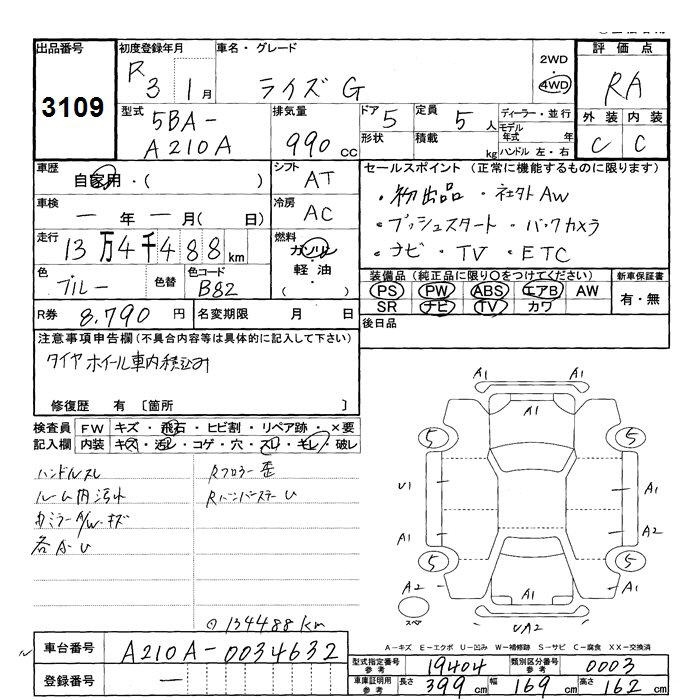 出品番号 初度登録年月 車名・グレード 評価点
3109 R3 1月 ライズ G 2WD ・ 4WD RA
外装 内装
C C
型式 5BA-A210A 排気量 990 cc ドア 5 形状 定員 5 人 積載 kg ディーラー・並行 モデル年式 年 ハンドル 左・右
車歴 自家用・( ) シフト AT
車検 ー 年 ー 月( 日) 冷房 AC
走行 13万4千488 km 燃料 ガソリン 軽油 ・( )
色 ブルー 色替 色コード B82
R券 8.790 円 名変期限 月 日
セールスポイント(正常に機能するものに限ります)
・初出品 ・社外AW
・プッシュスタート ・バックカメラ
・ナビ ・TV ・ETC
装備品(純正品に限り○をつけてください) 新車保証書
PS PW ABS エアB AW 有・無
SR ナビ TV カワ
後日品
注意事項申告欄(不具合内容等は具体的に記入して下さい)
タイヤホイール車内積込み
修復歴 有 〔箇所 〕
検査員記入欄 FW キズ・飛石・ヒビ割・リペア跡・×要
内装 キズ・汚レ・コゲ・穴・スレ・キレ・破レ
ハンドルスレ
ルーム内汚れ
各かU
Rフロアー歪
⊙134488 km
A1 A1
5 5
U1 A1
A1 A2
5 5
A2 A1 A1
スペア UA2
A－キズ E－エクボ U－凹み W－補修跡 S－サビ C－腐食 XX－交換済
車台番号 A210A-0034632
登録番号 ー
型式指定番号 参考 19404 類別区分番号 参考 0003
車庫証明用 参考 長さ 399 cm 幅 169 cm 高さ 162 cm